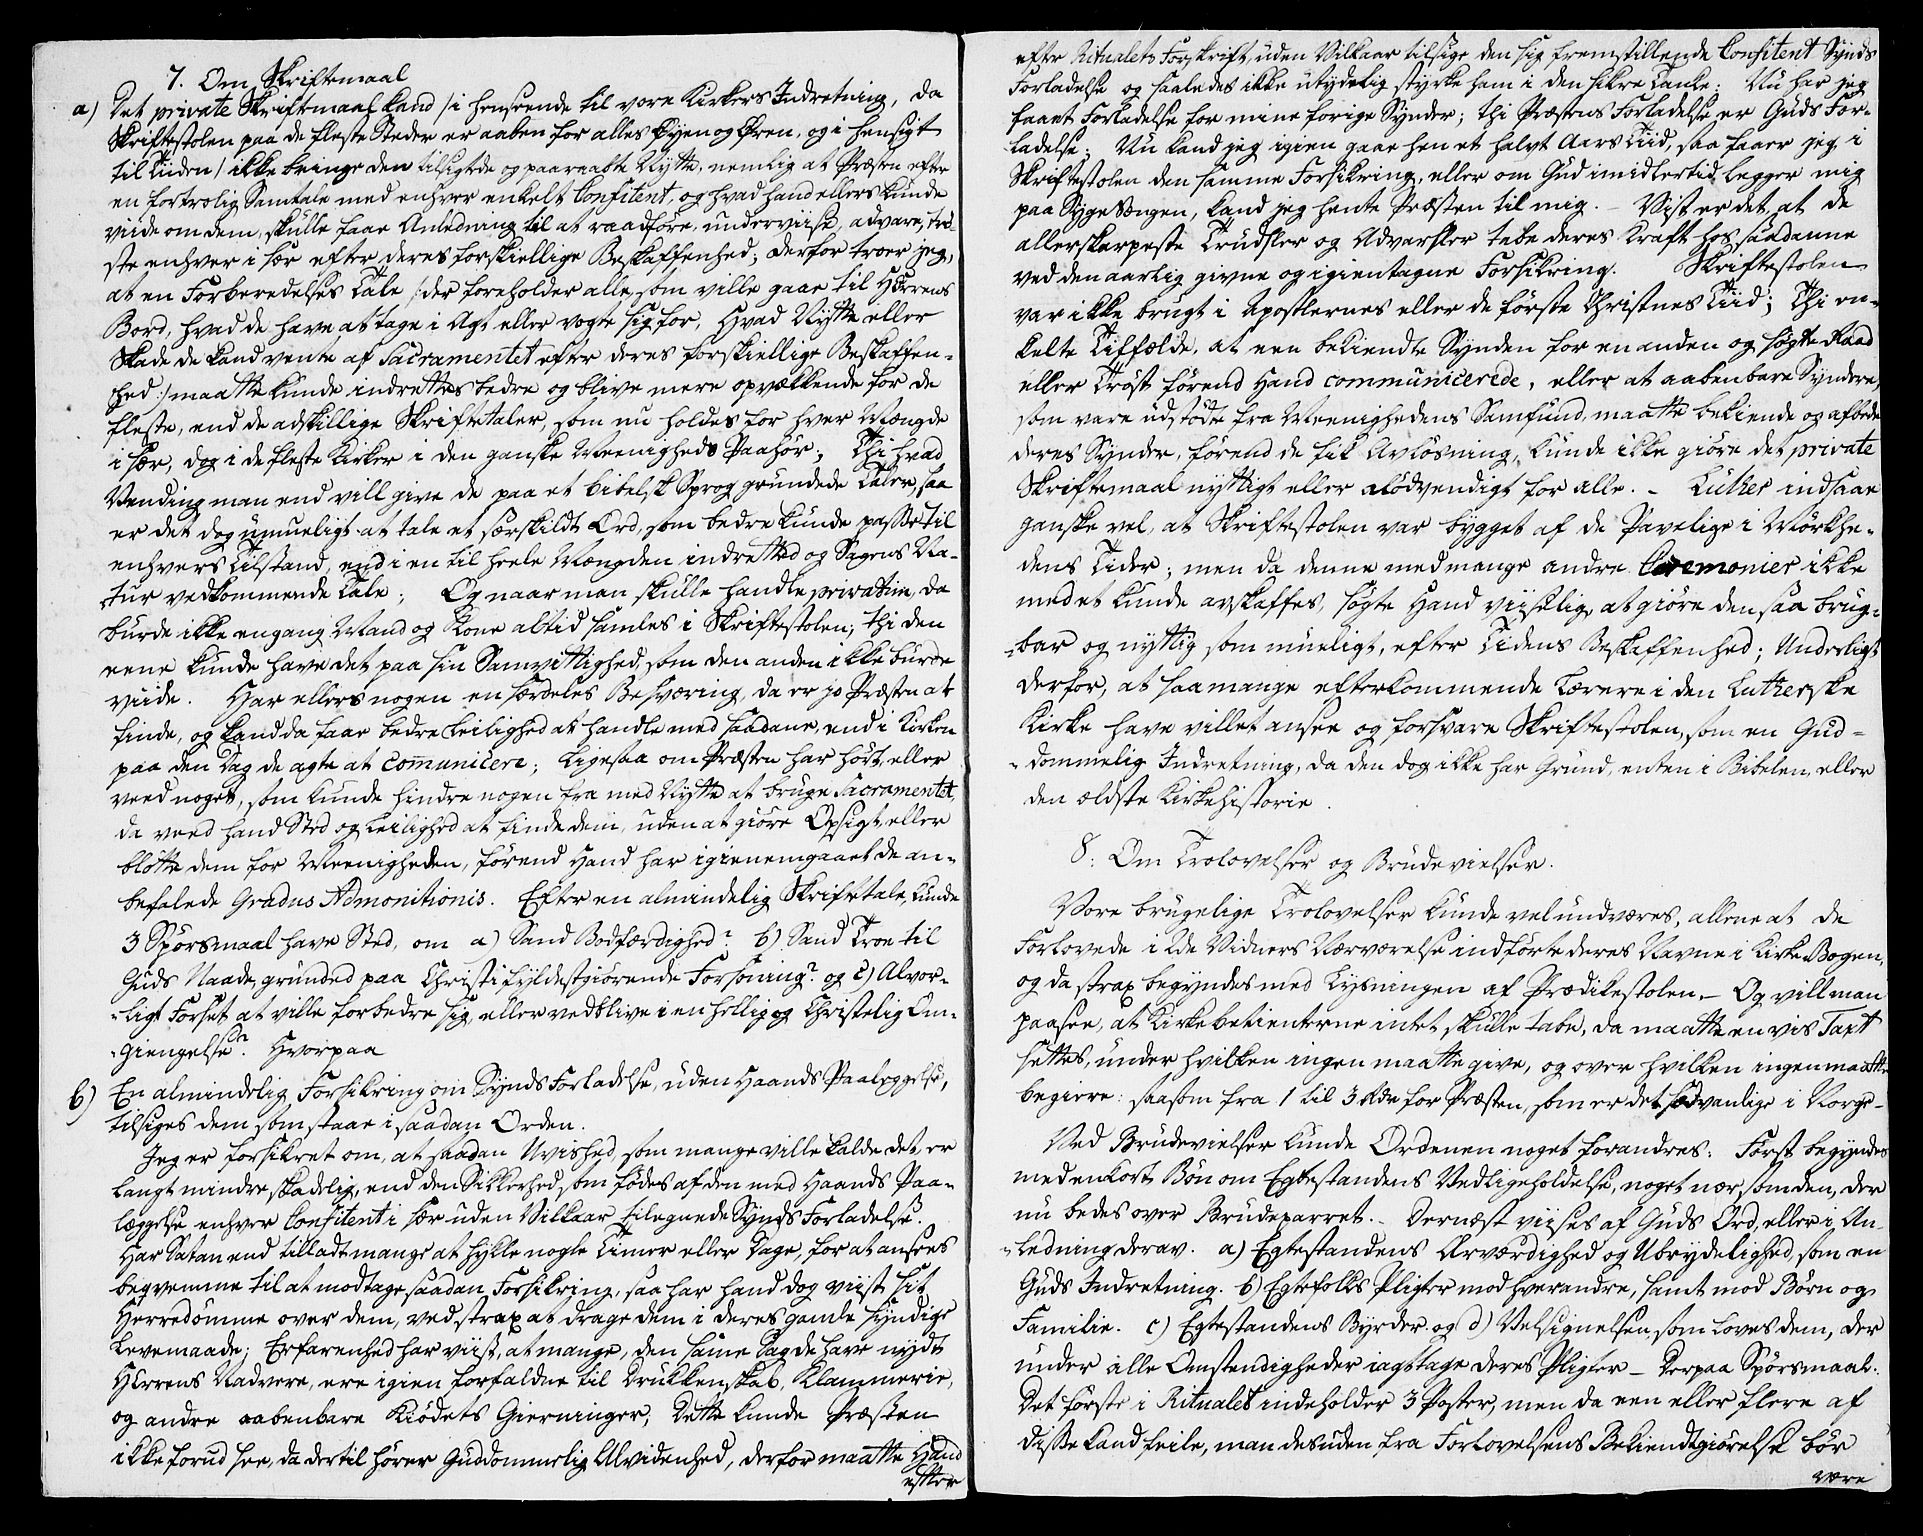 7. Om Skriftemaal
a) Det private Skriftemaal kand /: i henseende til vore Kirkers Indretning, da
Skriftestolen paa de fleste Steder er aaben for alles Øyen og Øren, og i hensigt
til Tiiden :/ ikke bringe den tilsigtede og paaraabte Nytte, nemlig at Præsten efter
en fortrolig Samtale med enhver enkelt Confitent, og hvad hand ellers kunde
viide om dem, skulle faae Anledning til at raadföre, underviise, advare, trö-
ste enhver i sær efter deres forskiellige Beskaffenhed; derfor troer jeg,
at en Forberedelses Tale /: der foreholder alle, som ville gaae til HErrens
Bord, hvad de have at tage i Agt eller vogte sig for, Hvad Nytte eller
Skade de kand vente af Sacramentet efter deres forskiellige Beskaffen-
hed :/ maatte kunde indrettes bedre og blive mere opvækkende for de
fleste, end de adskillige Skriftetaler, som nu holdes for hver Mængde
i sær, dog i de fleste Kirker i den ganske Meenigheds Paahör; Thi hvad
Vending man end vill give de paa et bibelsk Sprog grundede Taler, saa
er det dog umueligt at tale et særskildt Ord, som bedre kunde passe til
enhvers Tilstand, end i en til heele Mængden indrettted og Sagens Na-
tur vedkommende Tale; Og naar man skulle handle privatim, da
burde ikke engang Mand og Kone altid samles i Skriftestolen; thi den
eene kunde have det paa sin Samvittighed, som den anden ikke burde
viide. Har ellers nogen en særdeles Besværing, da er jo Præsten at
finde, og kand da faae bedre Leilighed at handle med saadane, end i Kirken
paa den Dag de agte at comunicere; Ligesaa om Præsten har hört, eller
veed noget, som kunde hindre nogen fra med Nytte at bruge Sacramentet,
da veed hand Sted og Leilighed at finde dem, uden at giöre Opsigt, eller
blotte dem for Meenigheden, förend Hand har igienemgaaet de an-
befalede Gradus Admonitionis. Efter en almindelig Skriftetale, kunde
3 Spörsmaal have Sted, om a) Sand Bodfærdighed? b) Sand Troe til
Guds Naade, grunded paa Christi fyldestgiörende Forsoning? og c) Alvor-
ligt Forset at ville forbedre sig, eller vedblive i en hellig og Christelig Om-
giengelse? Hvorpaa
b) En almindelig Forsikring om Synds Forladelse, uden Haands Paalæggelse,
tilsiges dem som staae i saadan Orden.
Jeg er forsikret om, at saadan Uvished, som mange ville kalde det, er
langt mindre skadelig, end den Sikkerhed, som födes af den med Haands Paa-
læggelse enhver Confitent i sær uden Vilkaar tilegnede Synds Forladelse.
Har Satan end tilladt mange at hykle nogle Timer eller Dage, for at ansees
beqvemme til at modtage saadan Forsikring, saa har hand dog viist sit
Herredömme over dem, ved strax at drage dem i deres gamle syndige
Levemaade; Erfarenhed har viist, at mange, den same Dag de have nydt
HErrens Nadvere, ere igien forfaldne til Drukkenskab, Klammerie,
og andre aabenbare Kiödets Gierninger; Dette kunde Præsten
ikke forud see, da dertil hörer Guddommelig Alvidenhed, derfor maatte Hand
efter
efter Ritualets Forskrift, uden Vilkaar tilsige den sig fremstillende Confitent Synds
Forladelse og saaledes ikke utydelig styrke ham i den sikre Tanke: Nu har jeg
faaet Forladelse for mine forige Synder; thi Præstens Forladelse er Guds For-
ladelse: Nu kand jeg igien gaae hen et halvt Aars Tiid, saa faaer jeg i
Skriftestolen den samme Forsikring, eller om Gud imidlertid legger mig
paa Syge Sengen, kand jeg hente Præsten til mig. – Vist er det, at de
allerskarpeste Trudsler og Advarsler tabe deres Kraft hos saadanne
ved den aarlig givne og igientagne Forsikring. Skriftestolen
var ikke brugt i Apostlernes eller de förste Christnes Tiid; Thi en-
kelte Tilfælde, at een bekiendte Synden for en anden og sögte Raad
eller Tröst förend Hand communicerede, eller at aabenbare Syndere,
som vare udstödte fra Meenighedens Samfund, maatte bekiende og afbede
deres Synder, förend de fik Avlösning, kunde ikke giöre det private
Skriftemaal nyttigt eller nödvendigt for alle. – Luther indsaae
ganske vel, at Skriftestolen var bygget af de Pavelige i Mörkhe-
dens Tider; men da denne med mange andre Ceremonier ikke
med et kunde avskaffes, sögte Hand viiselig at giöre den saa brug-
bar og nyttig som mueligt, efter Tidens Beskaffenhed; Underligt
derfor, at saa mange efterkommende Lærere i den Lutherske
Kirke have villet ansee og forsvare Skriftestolen, som en Gud-
dommelig Indretning, da den dog ikke har Grund, enten i Bibelen, eller
den ældste Kirkehistorie.
8. Om Trolovelser og Brudevielser.
Vore brugelige Trolovelser kunde vel undværes, allene at de
Forlovede i 2de Vidners Nærværelse indförte deres Navne i Kirke Bogen,
og da strax begyndes med Lysningen af Prædikestolen. – Og vill man
paasee, at Kirkebetienterne intet skulle tabe, da maatte en vis Taxt
settes, under hvilken ingen maatte give, og over hvilken ingen maatte
begiere: saasom fra 1 til 3 Rdr for Præsten, som er det sædvanlige i Norge –
Ved Brudevielser kunde Ordenen noget forandres: Först begyndes
med en kort Bön om Egtestandens Vedligeholdelse, noget nær som den, der
nu bedes over Brudeparret. – Dernæst viises af Guds Ord, eller i An-
ledning derav. a) Egtestandens Ærværdighed og Ubrydelighed, som en
Guds Indretning. b) Egtefolks Pligter mod hverandre, samt mod Börn og
Familie. c) Egtestandens Byrder. og d) Velsignelsen, som loves dem, der
under alle Omstendigheder iagttage deres Pligter – Derpaa Spörsmaal.
Det förste i Ritualet indeholder 3 Poster, men da een eller flere af
disse kand feile, man desuden fra Forlovelsens Bekiendtgiörelse bör
være